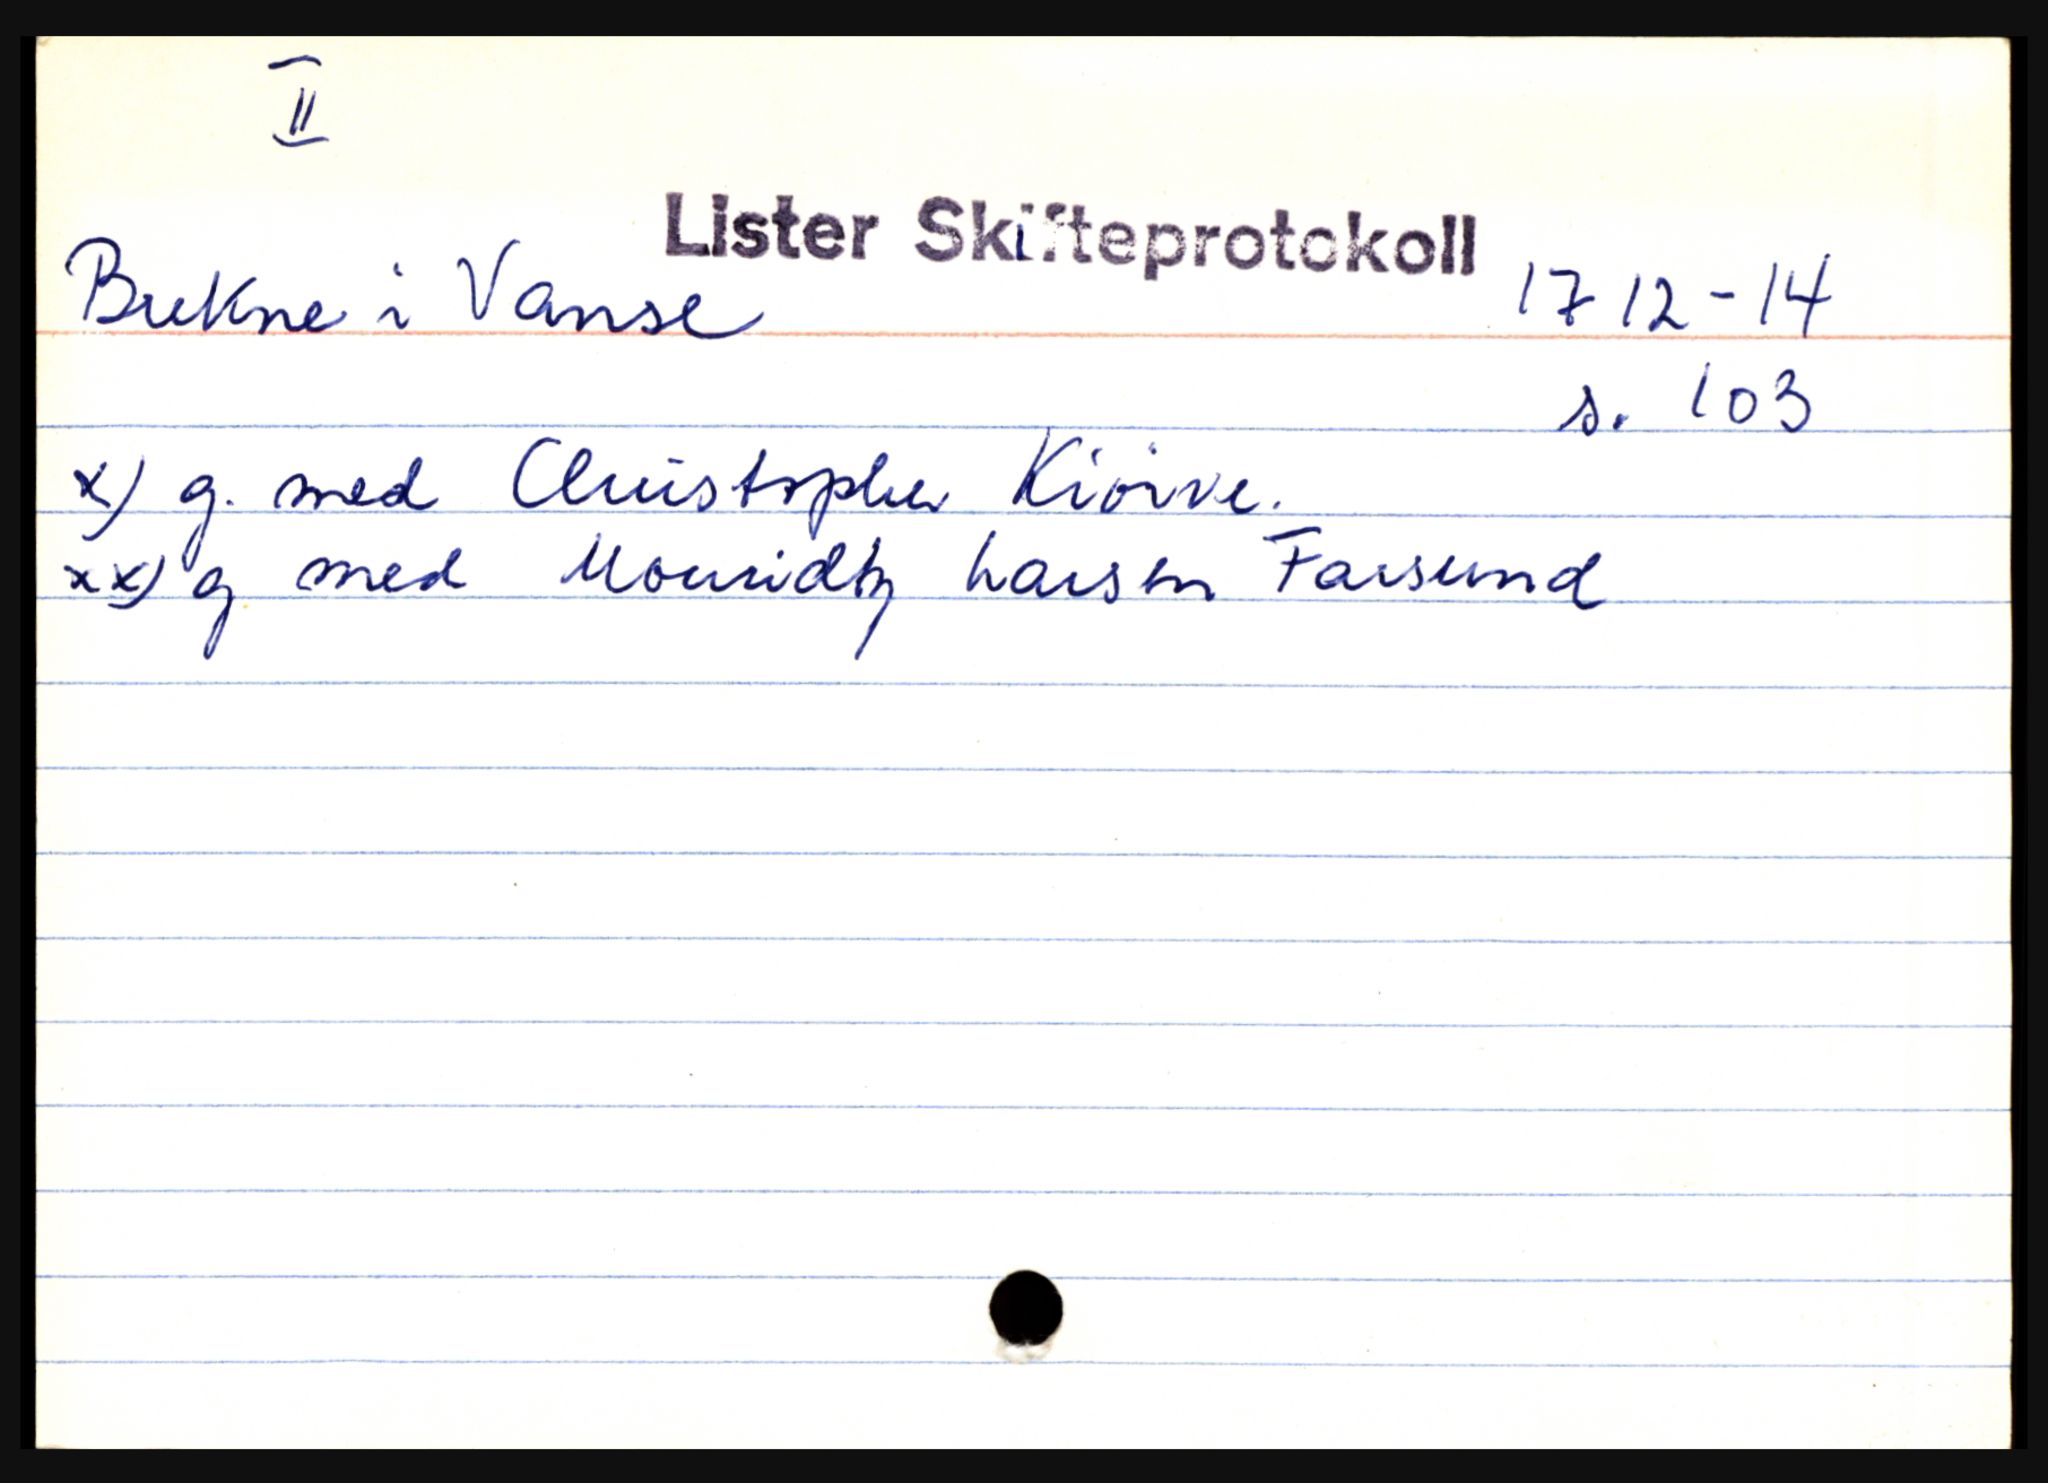 II
Lister Skifteprotokoll
Brekne i Vanse 1712-14
s. 103
x) g. med Christopher Kiörve.
xx) g med Mouridtz Larsen Farsund